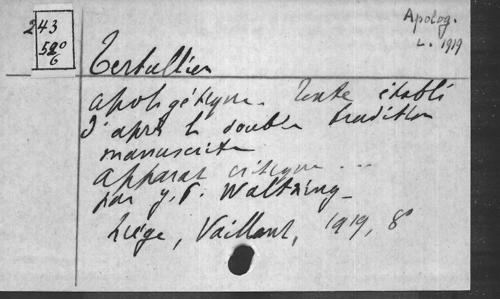 243
520
6
Apolog.
L. 1919
Tertullien
apologétique. Texte établi
d'après la double tradition
manuscrite
apparat critique ...
par J. P. Waltzing
Liége, Vaillant, 1919, 8°